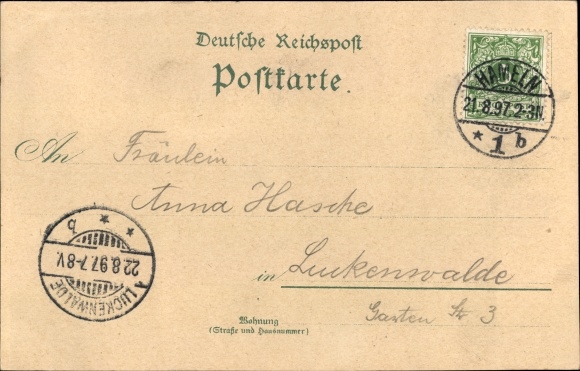 Deutsche Reichspost
Postkarte.
HAMELN
21.8.97.2-3N.
* 1 b
An Fräulein
Anna Hasche
in Luckenwalde
Garten Str 3
Wohnung
(Straße und Hausnummer)
LUCKENWALDE
22.8.97.7-8V.
* * b